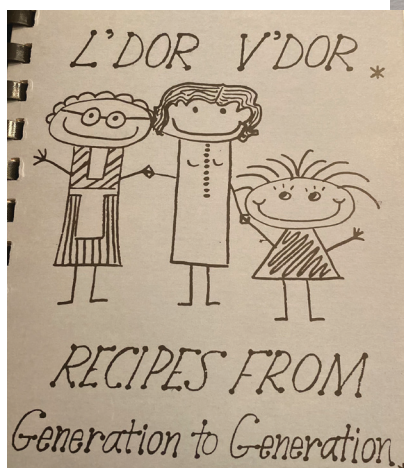 L'DOR V'DOR *
RECIPES FROM
Generation to Generation